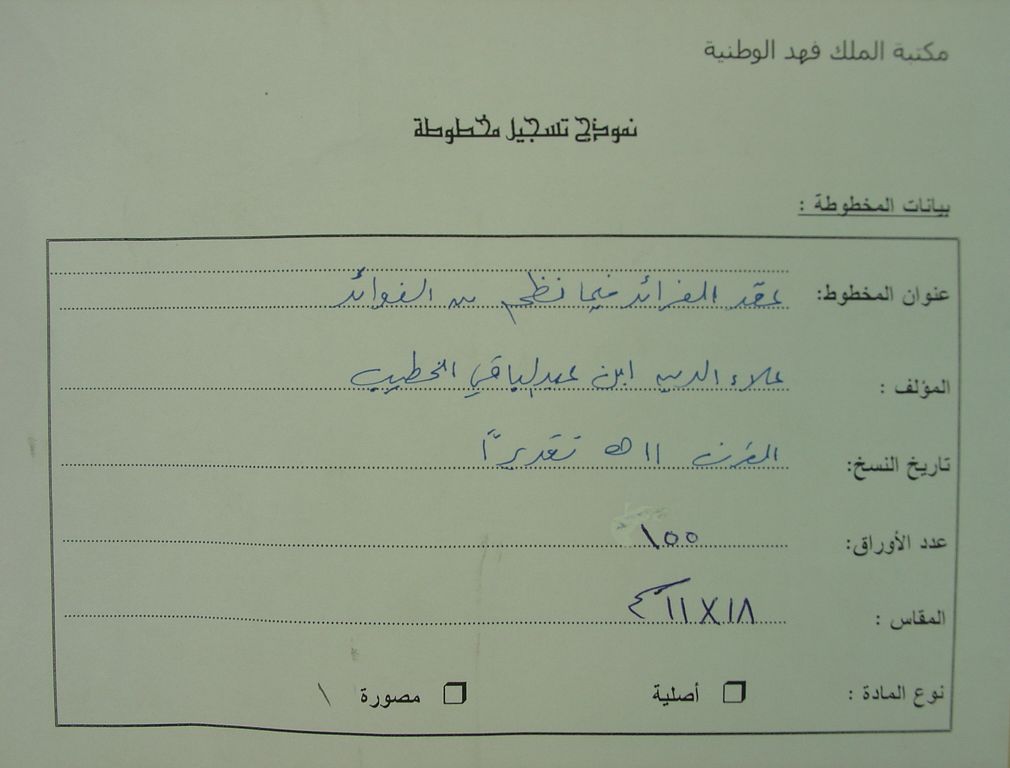 مكتبة الملك فهد الوطنية
نموذج تسجيل مخطوطة
بيانات المخطوطة :
عنوان المخطوط: عقد الفرائد فيما نظم من الفوائد
المؤلف : علاء الدين ابن عبدالباقي الخطيب
تاريخ النسخ: القرن ١١ هـ تقديرًا
عدد الأوراق: ١٥٥
المقاس : ١٨ X ١١ سم
نوع المادة : أصلية مصورة \